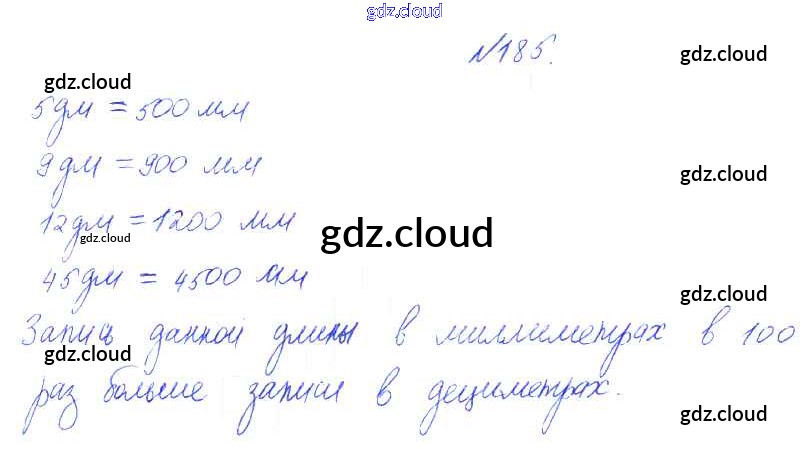 gdz.cloud
№185.
gdz.cloud
gdz.cloud
5дм = 500 мм
9дм = 900 мм
gdz.cloud
12дм = 1200 мм
gdz.cloud
gdz.cloud
45дм = 4500 мм
gdz.cloud
Запись данной длины в миллиметрах в 100
gdz.cloud
раз больше записи в дециметрах.
gdz.cloud